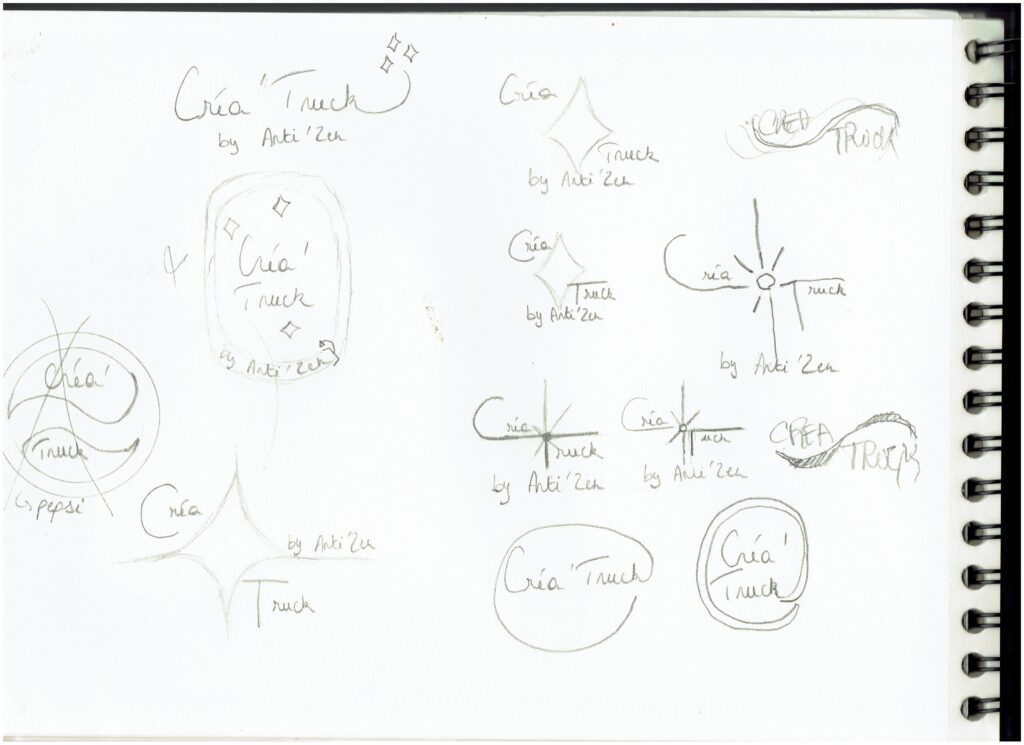 Créa'Truck
by Anti'Zen
Créa'
Truck
by Anti'Zen
Créa'
Truck
↳ pepsi
Créa
by Anti'Zen
Truck
Créa
Truck
by Anti'Zen
CREA
TRUCK
Créa
Truck
by Anti'Zen
Créa
Truck
by Anti'Zen
Créa
Truck
by Anti'Zen
Créa
Truck
by Anti'Zen
CREA
TRUCK
Créa'Truck
Créa'
Truck